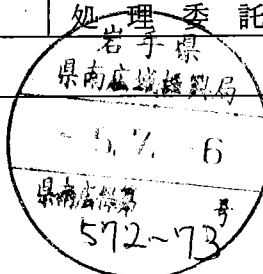 処理委託
岩手県
県南広域振興局
5. 6
県南広
号
572~73